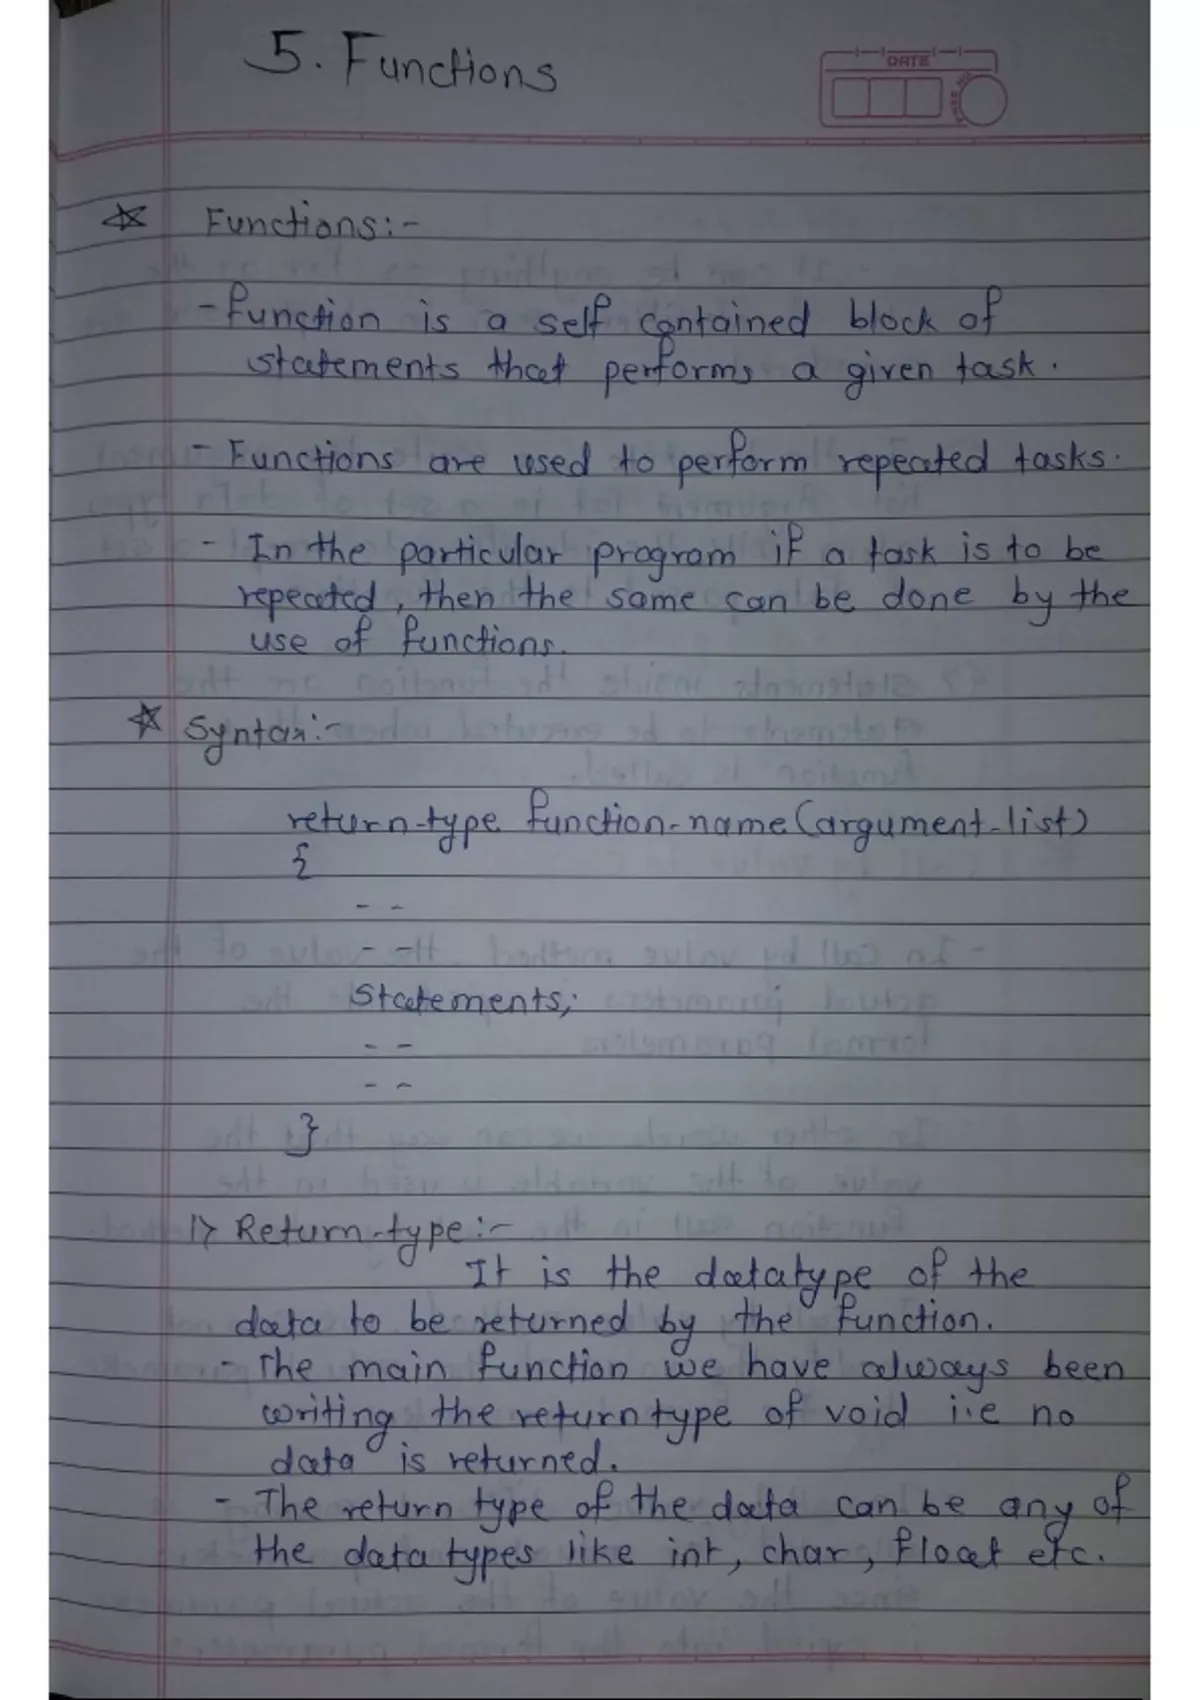 5. Functions
DATE
☆ Functions:-
- function is a self contained block of
statements that performs a given task.
- Functions are used to perform repeated tasks.
- In the particular program if a task is to be
repeated, then the same can be done by the
use of functions.
☆ Syntax:-
return-type function-name(argument-list)
{
- -
- -
Statements;
- -
- -
}
1> Return-type:-
It is the datatype of the
data to be returned by the function.
- The main function we have always been
writing the return type of void i.e no
data is returned.
- The return type of the data can be any of
the data types like int, char, float etc.